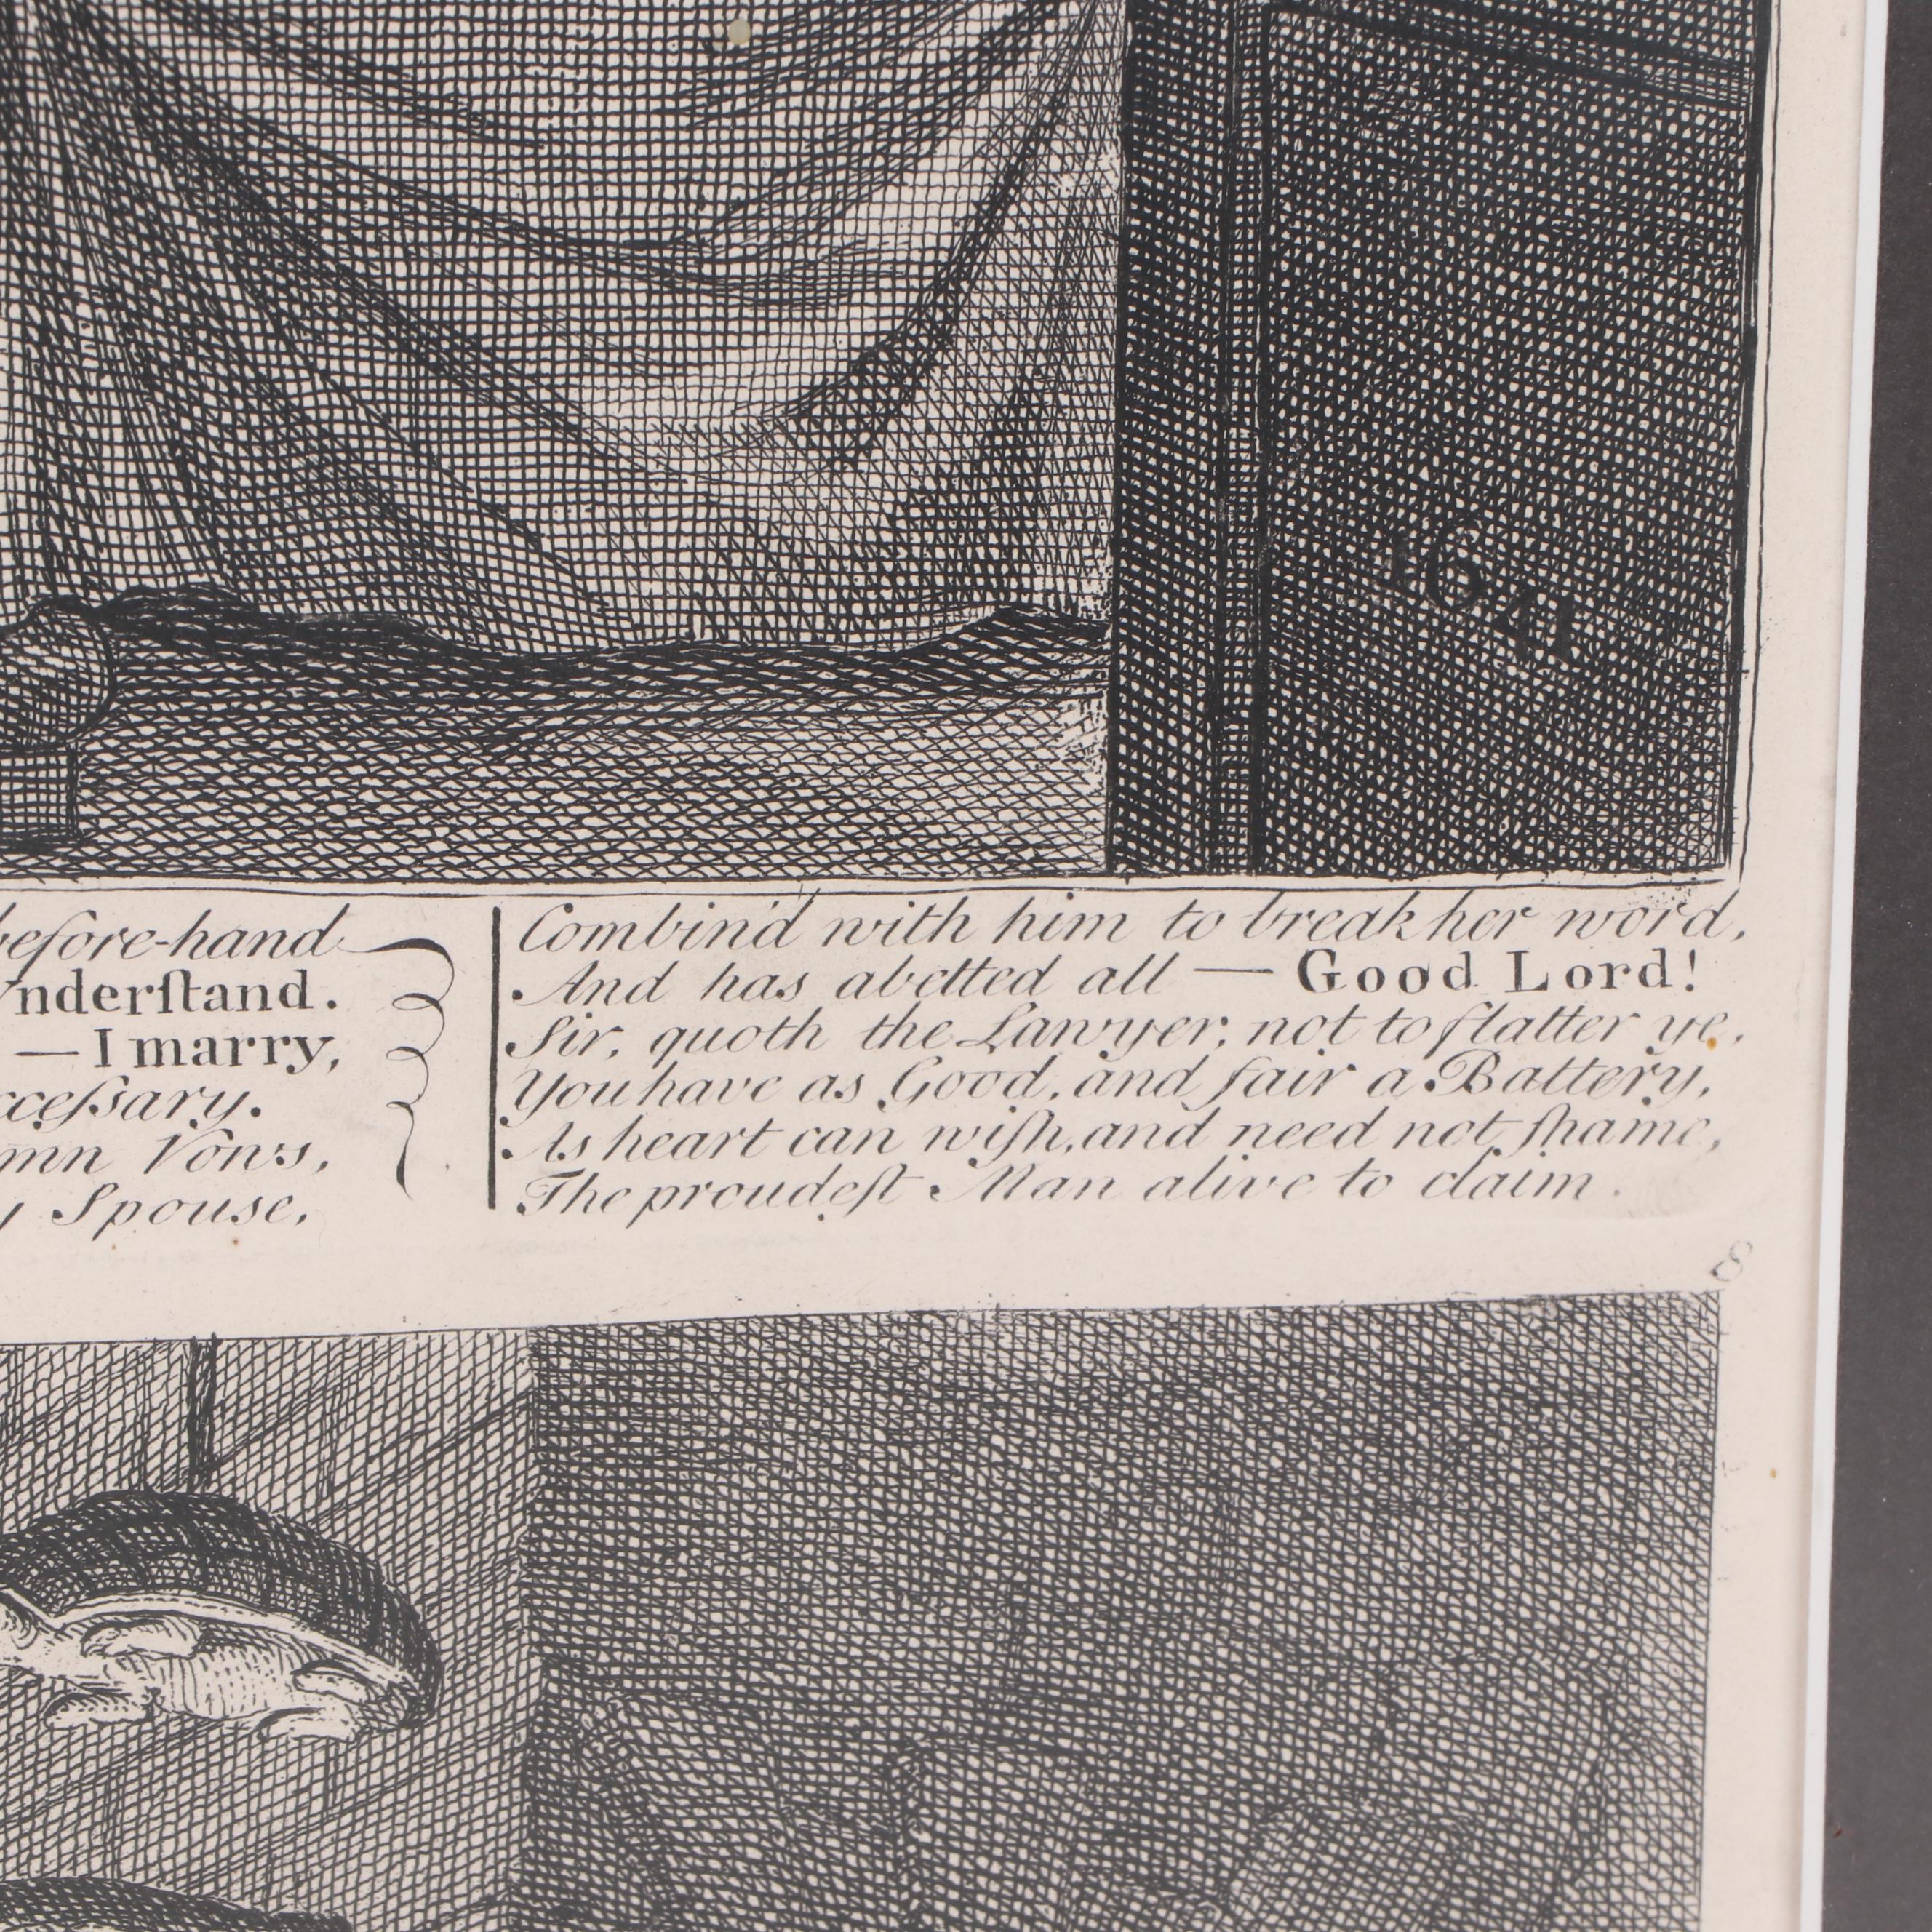 before-hand
nderſtand.
— I marry,
ceſsary.
mn Vows,
Spouse,
Combin'd with him to break her word,
And has abetted all — Good Lord!
Sir, quoth the Lawyer, not to flatter ye,
You have as Good, and fair a Battery,
As heart can wiſh, and need not ſhame,
The proudeſt Man alive to claim.
8